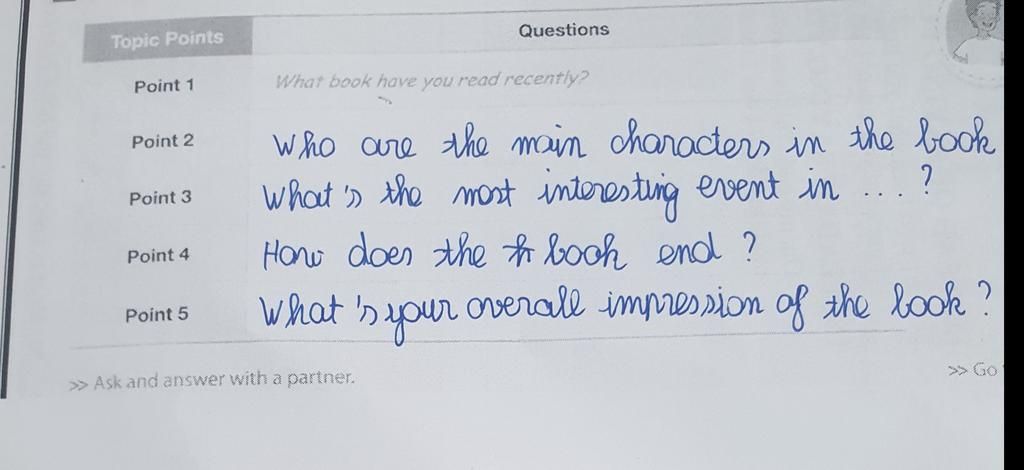 Topic Points Questions
Point 1 What book have you read recently?
Point 2 Who are the main characters in the book
Point 3 What's the most interesting event in ... ?
Point 4 How does the book end ?
Point 5 What's your overall impression of the book ?
>> Ask and answer with a partner. >> Go